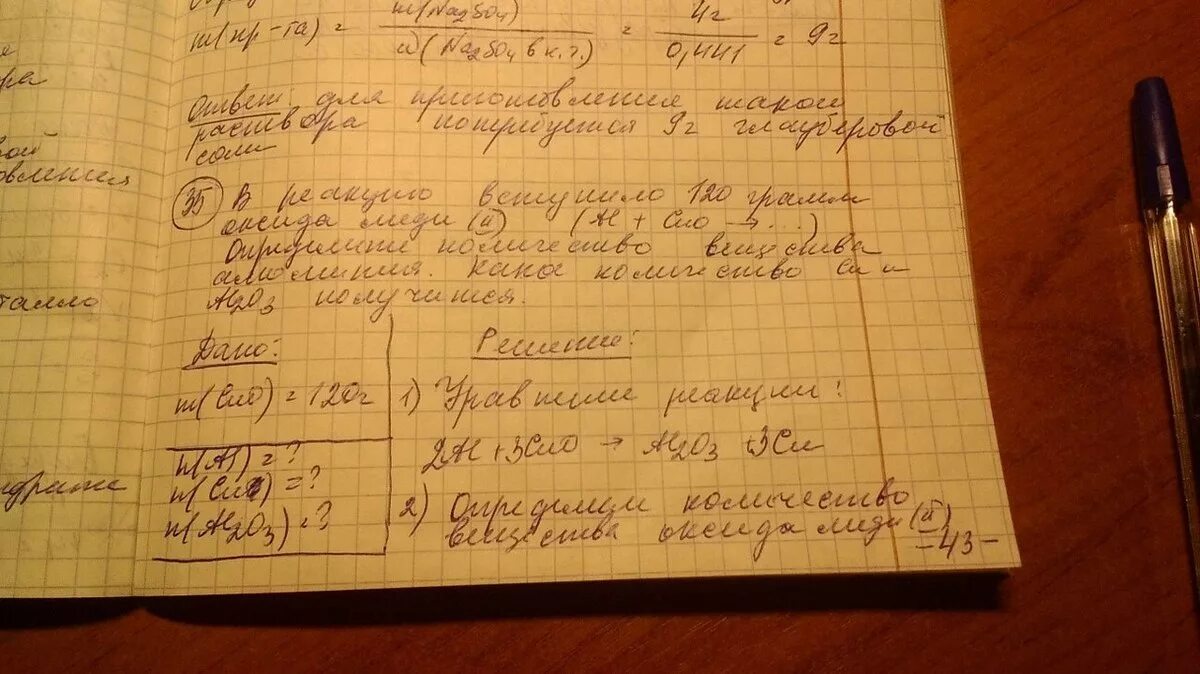 m(Na2SO4)
m(кр-та) = ω(Na2SO4 в к.г.) = 4г / 0,441 = 9г
Ответ: для приготовления такого
раствора потребуется 9г глауберовой
соли
35 В реакцию вступило 120 грамм
оксида меди (II) (Al + CuO → ...)
Определите количество вещества
алюминия. Како количество Cu и
Al2O3 получится.
Дано:
m(CuO) = 120г
n(Al) = ?
n(Cu) = ?
n(Al2O3) = ?
Решение:
1) Уравнили реакции:
2Al + 3CuO → Al2O3 + 3Cu
2) Определим количество
вещества оксида меди (II)
-43-
ра
вой
овления
талло
идрате